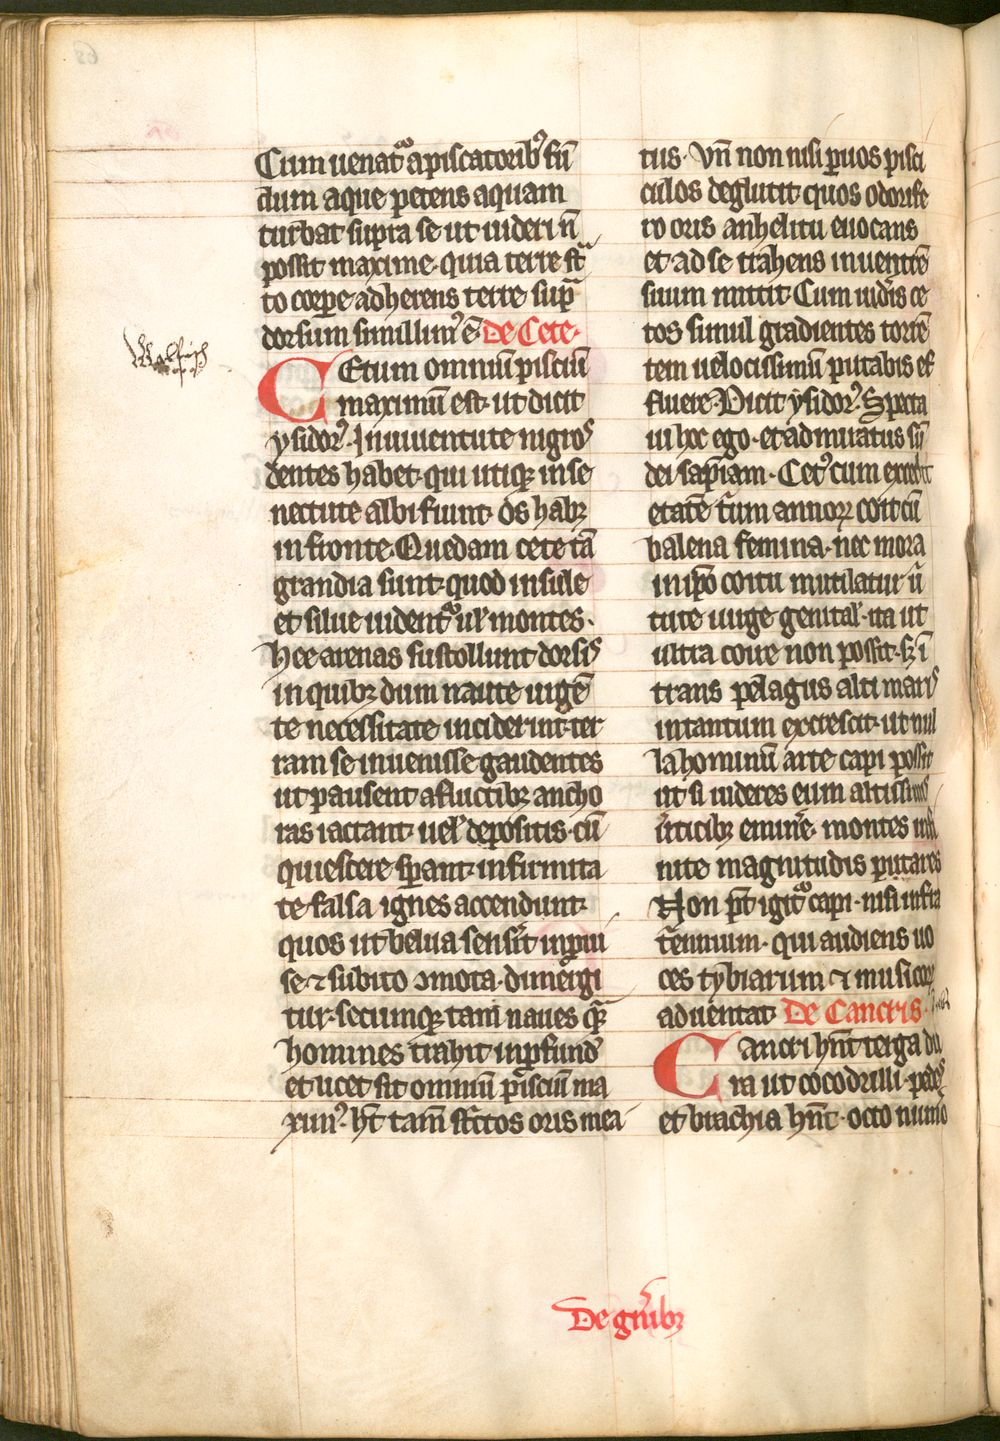 Cum uenat᷑ a piscatorib᷒ fū
dum aque petens aquam
turbat supra se ut uideri n̄
possit maxime · quia terrest᷑
to corpe adherens terre sup̄
dorsum simillim᷒ ē · De Cete ·
Walfisch
CEtum omniū pisciū
maximū est · ut dicit
ysidor᷒ · In iuuentute nigros
dentes habet · qui utiqꝫ in se
nectute albi fiunt · os habꝫ
in fronte · Quedam cete tā
grandia sunt · quod insule
et silue uident᷑ ul᷑ montes ·
hee arenas sustollunt dorsis
in quibꝫ dum naute uigē
te necessitate inciderint · ter
ram se inuenisse gaudentes
ut pausent a fluctibꝫ ancho
ras iactant · uel᷑ depositis · cū
quiescere sperant · in firmita
te falsa ignes accendunt ·
quos ut belua senserit inpiu
se · ⁊ subito ꝯmota · dimergi
tur · secumqꝫ tam naues qᷓ
homines trahit in pfund᷒
et licet sit omniū p̄sciū ma
xim᷒ · ht̄ tam̄ strictos oris mea
tus · Vn̄ non nisi paruos pisci
culos deglutit · quos odorife
ro oris anhelitu euocans
et ad se trahens in uentrē
suum mittit · Cum uid̄is ce
tos simul gradientes torrē
tem uelocissimū putabis ef
fluere · Dicit ysidor᷒ · Specta
ui hoc ego · et admiratus sū
dei sap̄iam · Cet᷒ cum
etatē t̄um annoꝝ coit cū
balena femina · nec mora
in ip̄o coitu mutilatur ū
tute uirge genital᷑ · ita ut
ultra coire non possit · sꝫ ī
trans pelagus alti maris
intantum excrescit · ut nul
la hominū arte capi possit
ut si uideres eum altissimis
ūticibꝫ eminē · montes infi
nite magnitudis putares
Non pt̄ igit᷑ capi · nisi infra
t̄ennium · qui audiens uo
ces tybiarum ⁊ musicoꝝ
aduentat · De Cancris ·
Cancri hn̄t terga du
ra ut cocodrilli · pedes
et brachia hn̄t · octo numo
De gruibꝫ